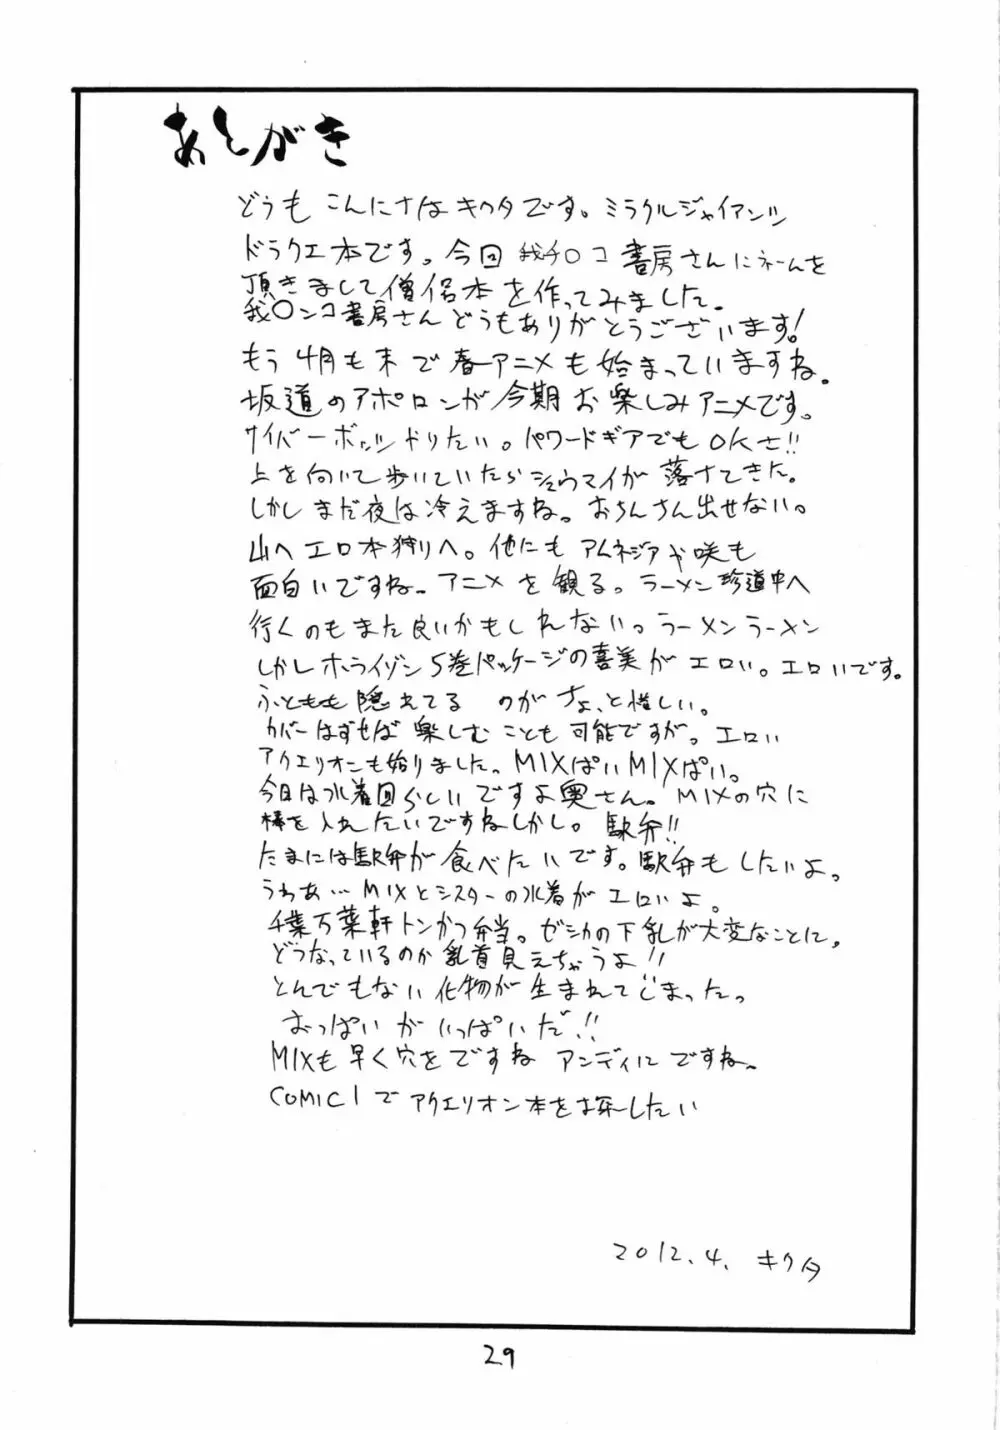 あとがき
どうもこんにちはキクタです。ミラクルジャイアンツ
ドラクエ本です。今回我チ○コ書房さんにネームを
頂きまして僧侶本を作ってみました。
我○ンコ書房さんどうもありがとうございます!
もう4月も末で春アニメも始まっていますね。
坂道のアポロンが今期お楽しみアニメです。
サイバーボッツドりたい。パワードギアでもOKさ!!
上を向いて歩いていたらシュウマイが落ちてきた。
しかしまだ夜は冷えますね。おちんさん出せない。
山へエロ本狩りへ。他にもアムネジアや咲も
面白いですね。アニメを観る。ラーメン珍道中へ
行くのもまた良いかもしれない。ラーメンラーメン
しかしホライゾン5巻パッケージの喜美がエロい。エロいです。
ふともも隠れてるのがちょっと惜しい。
カバーはずせば楽しむことも可能ですが。エロい
アクエリオンも始りました。MIXぱいMIXぱい。
今日は水着回らしいですよ奥さん。MIXの穴に
棒を入れたいですねしかし。駅弁!!
たまには駅弁が食べたいです。駅弁もしたいよ。
うわあ…MIXとシスターの水着がエロいよ。
千葉万葉軒トンかつ弁当。ゼシカの下乳が大変なことに。
どうなっているのか乳首見えちゃうよ!!
とんでもない化物が生まれてしまった。
おっぱいがいっぱいだ!!
MIXも早く穴をですねアンディにですね。
COMIC1でアクエリオン本を探したい
2012.4. キクタ
29